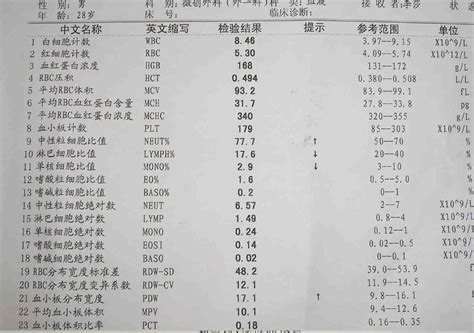 性 别: 男 科 别: 微创外科 (外一科) 种 类: 血液 接 收 者: 李莎
年 龄: 28岁 床 号: 临床诊断: 状态
中文名称 英文缩写 检验结果 提示 参考范围 单位
1 白细胞计数 WBC 8.46 3.97--9.15 X10^9/L
2 红细胞计数 RBC 5.30 4.09--5.74 X10^12/L
3 血红蛋白浓度 HGB 168 131--172 g/L
4 RBC压积 HCT 0.494 0.380--0.508 L/L
5 平均RBC体积 MCV 93.2 83.9--99.1 fL
6 平均RBC血红蛋白含量 MCH 31.7 27.8--33.8 pg
7 平均RBC血红蛋白浓度 MCHC 340 320--355 g/L
8 血小板计数 PLT 179 85--303 X10^9/L
9 中性粒细胞比值 NEUT% 77.7 ↑ 50--70 %
10 淋巴细胞比值 LYMPH% 17.6 ↓ 20--40 %
11 单核细胞比值 MONO% 2.9 ↓ 3--10 %
12 嗜酸粒细胞比值 EO% 1.6 0.5--5.0 %
13 嗜碱细胞比值 BASO% 0.2 0--1 %
14 中性粒细胞绝对数 NEUT 6.57 2--7 X10^9/L
15 淋巴细胞绝对数 LYMP 1.49 0.8--4 X10^9/
16 单核细胞绝对数 MONO 0.24 0.12--1 X10^9/
17 嗜酸细胞绝对数 EOSI 0.14 X10^9/
18 嗜碱细胞绝对数 BASO 0.02 0--0.1 X10^9
19 RBC分布宽度标准差 RDW-SD 48.2 39.0--53.9 fL
20 RBC分布宽度变异系数 RDW-CV 12.1 %
21 血小板分布宽度 PDW 17.1 ↑ 9.8--16.1
22 平均血小板体积 MPV 10.1
23 血小板体积比率 PCT 0.18 0.16--0.35